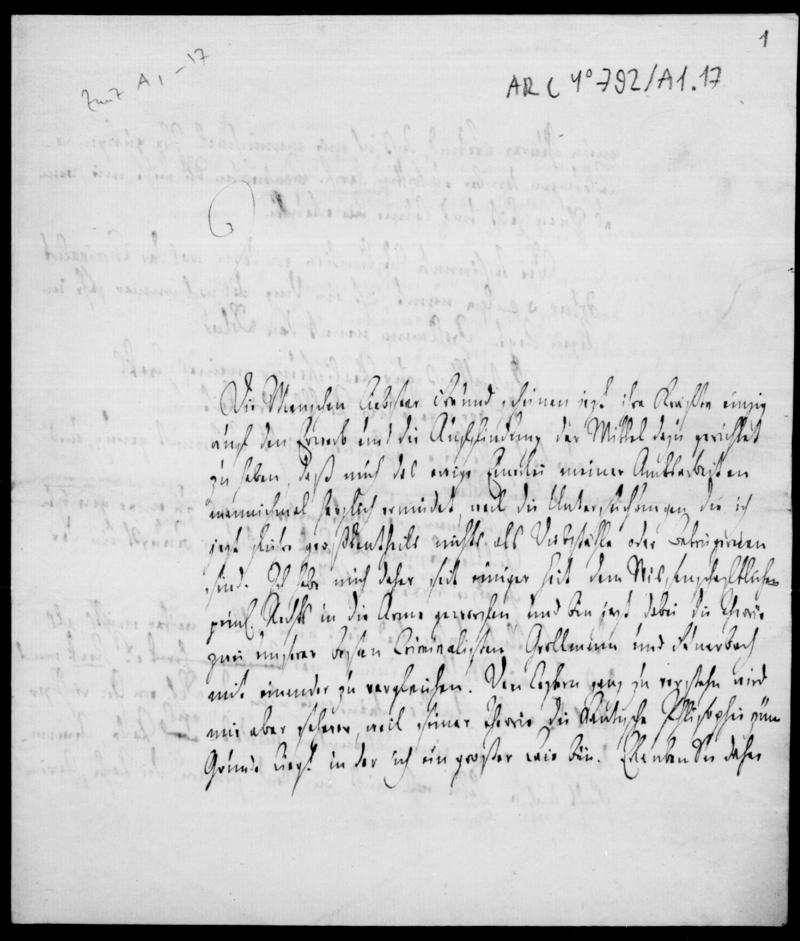 1
Zunz A, -17
ARC 4° 792/A1.17
Die Menschen liebster Freund scheinen jezt ihre Kräfte einzig
auf den Erwerb und die Auffindung der Mittel dazu gerichtet
zu haben, daß mich das ewige Einerlei meiner Amtsarbeiten
mannichmal herzlich ermüdet, weil die Untersuchungen die ich
jezt führe größtentheils nichts als Diebstähle oder Betrügereien
sind. Ich habe mich daher seit einiger Zeit dem Wissenschaftlichen
peinl. Rechts in die Arme geworfen und bin jezt dabei die Theorie
zwei unserer besten Criminalisten Grollmann und Feuerbach
mit einander zu vergleichen. Den leztern ganz zu verstehn wird
mir aber schwer, weil seiner Theorie die Kantische Philosophie zum
Grunde liegt in der ich ein großer Laie bin. Erlauben Sie daher